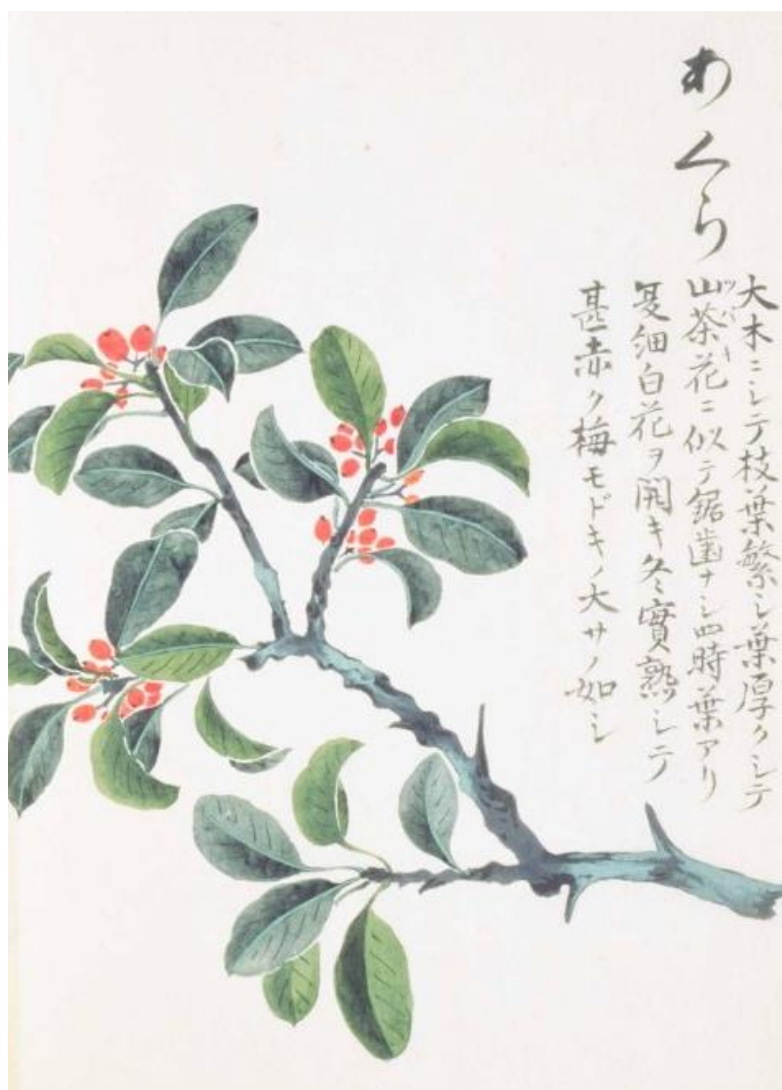 あくら
大木ニシテ枝葉繁シ葉厚クシテ
山茶花ニ似テ鋸歯ナシ四時葉アリ
ツバキ
夏細白花ヲ開キ冬實熟シテ
甚赤ク梅モドキノ大サノ如シ